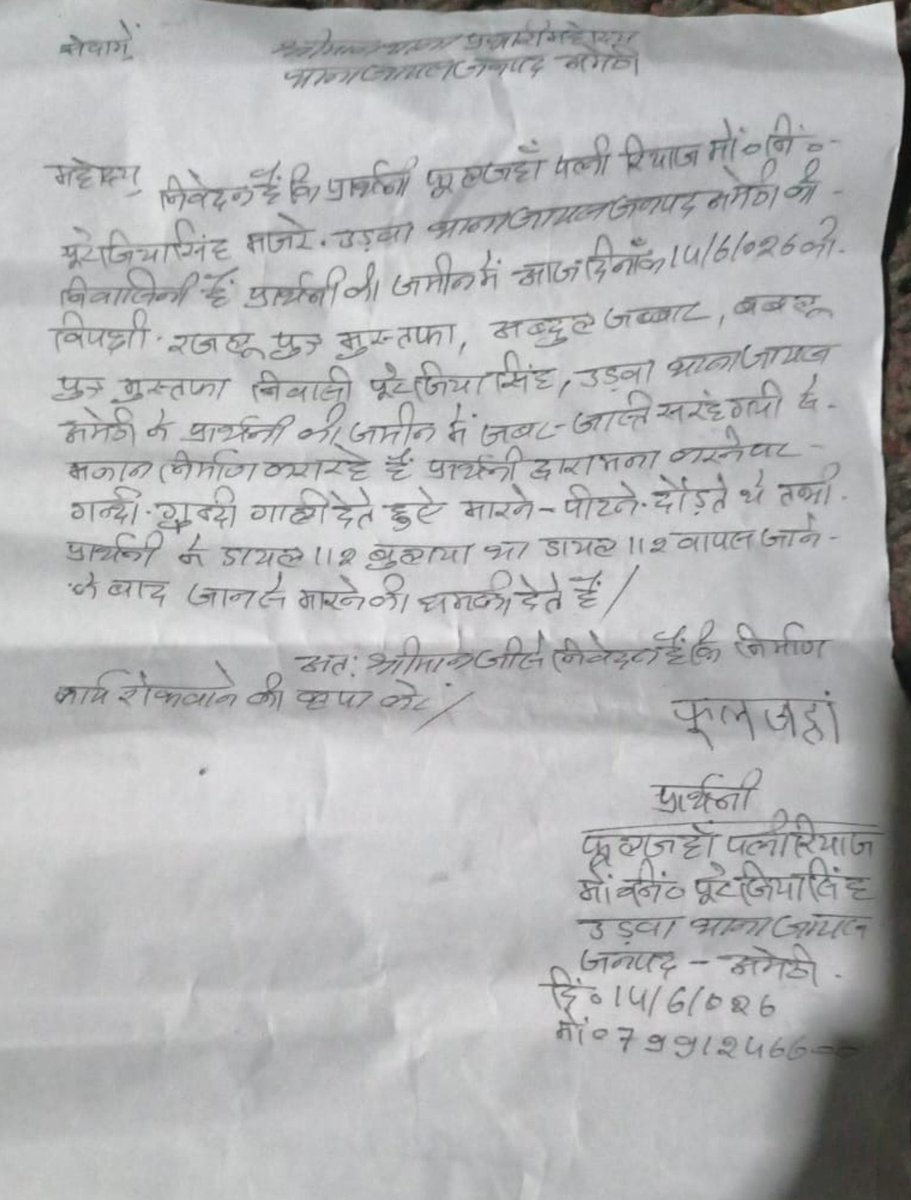 सेवामें
श्रीमान थाना प्रभारी महोदय
थाना जायस जनपद अमेठी
महोदय,
निवेदन है कि प्रार्थनी फूलजहाँ पत्नी रियाज मो०नि०-
पूरे जिया सिंह मजरे. उड़वा थाना जायस जनपद अमेठी की-
निवासिनी है प्रार्थनी की जमीन में आज दिनाँक 14/6/026 को.
विपक्षी. राजू पुत्र मुस्तफा, अब्दुल जब्बार, बबलू
पुत्र मुस्तफा निवासी पूरे जिया सिंह, उड़वा थाना जायस
अमेठी के प्रार्थनी की जमीन में जबर- से-
मकान निर्माण करा रहे हैं प्रार्थनी द्वारा मना करने पर-
गन्दी. गन्दी गाली देते हुए मारने-पीटने. दौड़ते थे तभी.
प्रार्थनी ने डायल 112 बुलाया था डायल 112 वापस जाने-
के बाद जान से मारने की धमकी देते हैं/
अत: श्रीमान जी से निवेदन है कि निर्माण
कार्य रोकवाने की कृपा करें/
फूलजहां
प्रार्थनी
फूलजहाँ पत्नी रियाज
पूरे जिया सिंह
उड़वा थाना जायस
जनपद - अमेठी.
दि०14/6/026
मो०